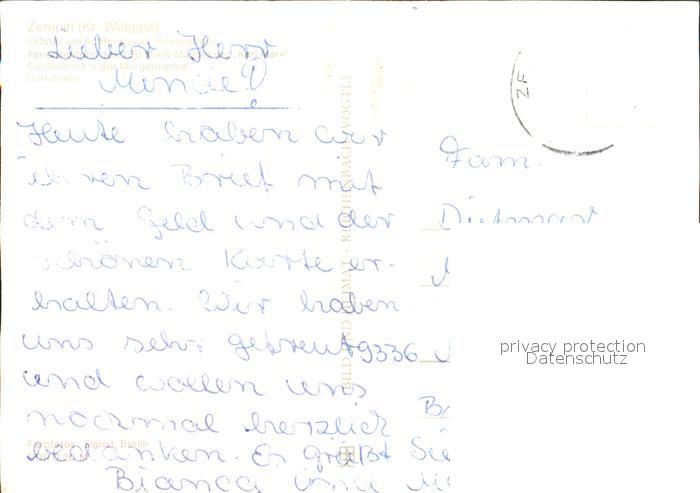 Zempin (Kr. Wolgast)
Lieber Herr
Fischerboot in der Morgensonne
Dorfstraße
Heute haben wir
ihren Brief mit
dem Geld und der
schönen Karte er-
halten. Wir haben
uns sehr gefreut
und wollen uns
nochmal herzlich
bedanken. Es grüßt Sie
Bianca und
BILD UND HEIMAT · REICHENBACH (VOGTL)
9336
Farbfotos: Sigrist, Berlin
ZF
Fam.
Dietmar
privacy protection
Datenschutz